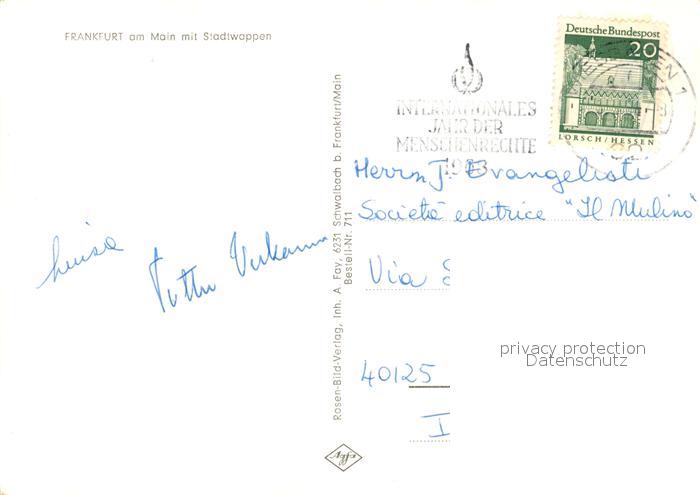 FRANKFURT am Main mit Stadtwappen
Luisa
Rosen-Bild-Verlag, Inh. A. Fay, 6231 Schwalbach b. Frankfurt/Main
Bestell-Nr. 711
Agfa
INTERNATIONALES
JAHR DER
MENSCHENRECHTE
1968
Deutsche Bundespost
20
LORSCH/HESSEN
Herrn J. Evangelisti
Società editrice "Il Mulino"
Via S
40125
I
privacy protection
Datenschutz